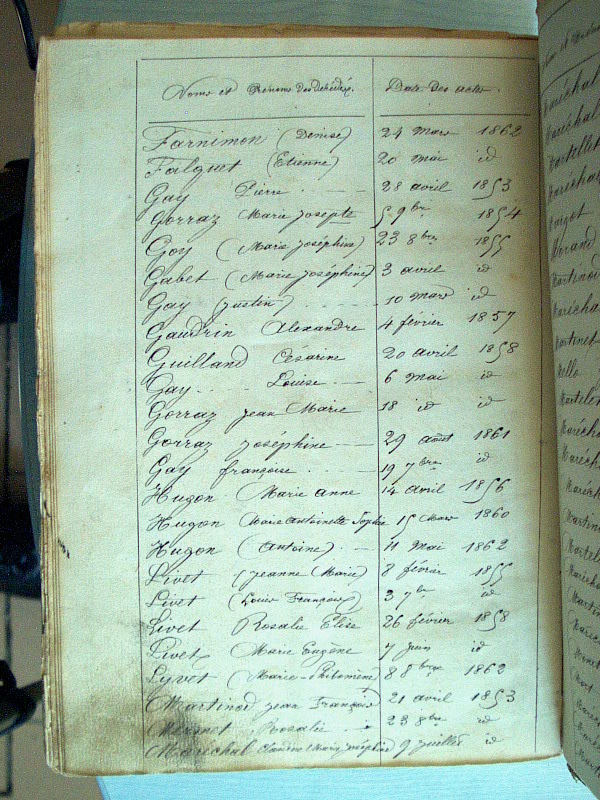 Noms et Prénoms des décédés. Date des actes.
Farnimon (Denise) 24 Mars 1862
Falguet (Etienne) 20 mai id
Gay Pierre 28 avril 1853
Gorraz Marie Josepte 5 9bre 1854
Goy (Marie Joséphine) 23 8bre 1855
Gabet (Marie Joséphine) 3 avril id
Gay (Justin) 10 mars id
Gaudrin Alexandre 4 février 1857
Guilland Césarine 20 avril 1858
Gay Louise 6 mai id
Gorraz jean Marie 18 id id
Gorraz joséphine 29 août 1861
Gay françoise 19 7bre id
Hugon Marie anne 14 avril 1856
Hugon Marie Antoinette Sophie 15 Mars 1860
Hugon (Antoine) 11 Mai 1862
Livet (jeanne Marie) 8 février 1855
Livet (Louis François) 3 7bre id
Livet Rosalie Elise 26 février 1858
Livet Marie Eugène 7 juin id
Lyvet (Marie-Philomène) 8 8bre 1862
Martinod jean François 21 avril 1853
Mermet Rosalie 23 8bre id
Maréchal Claudine Marie joséphine 9 juillet id
Maréchal
Maréchal